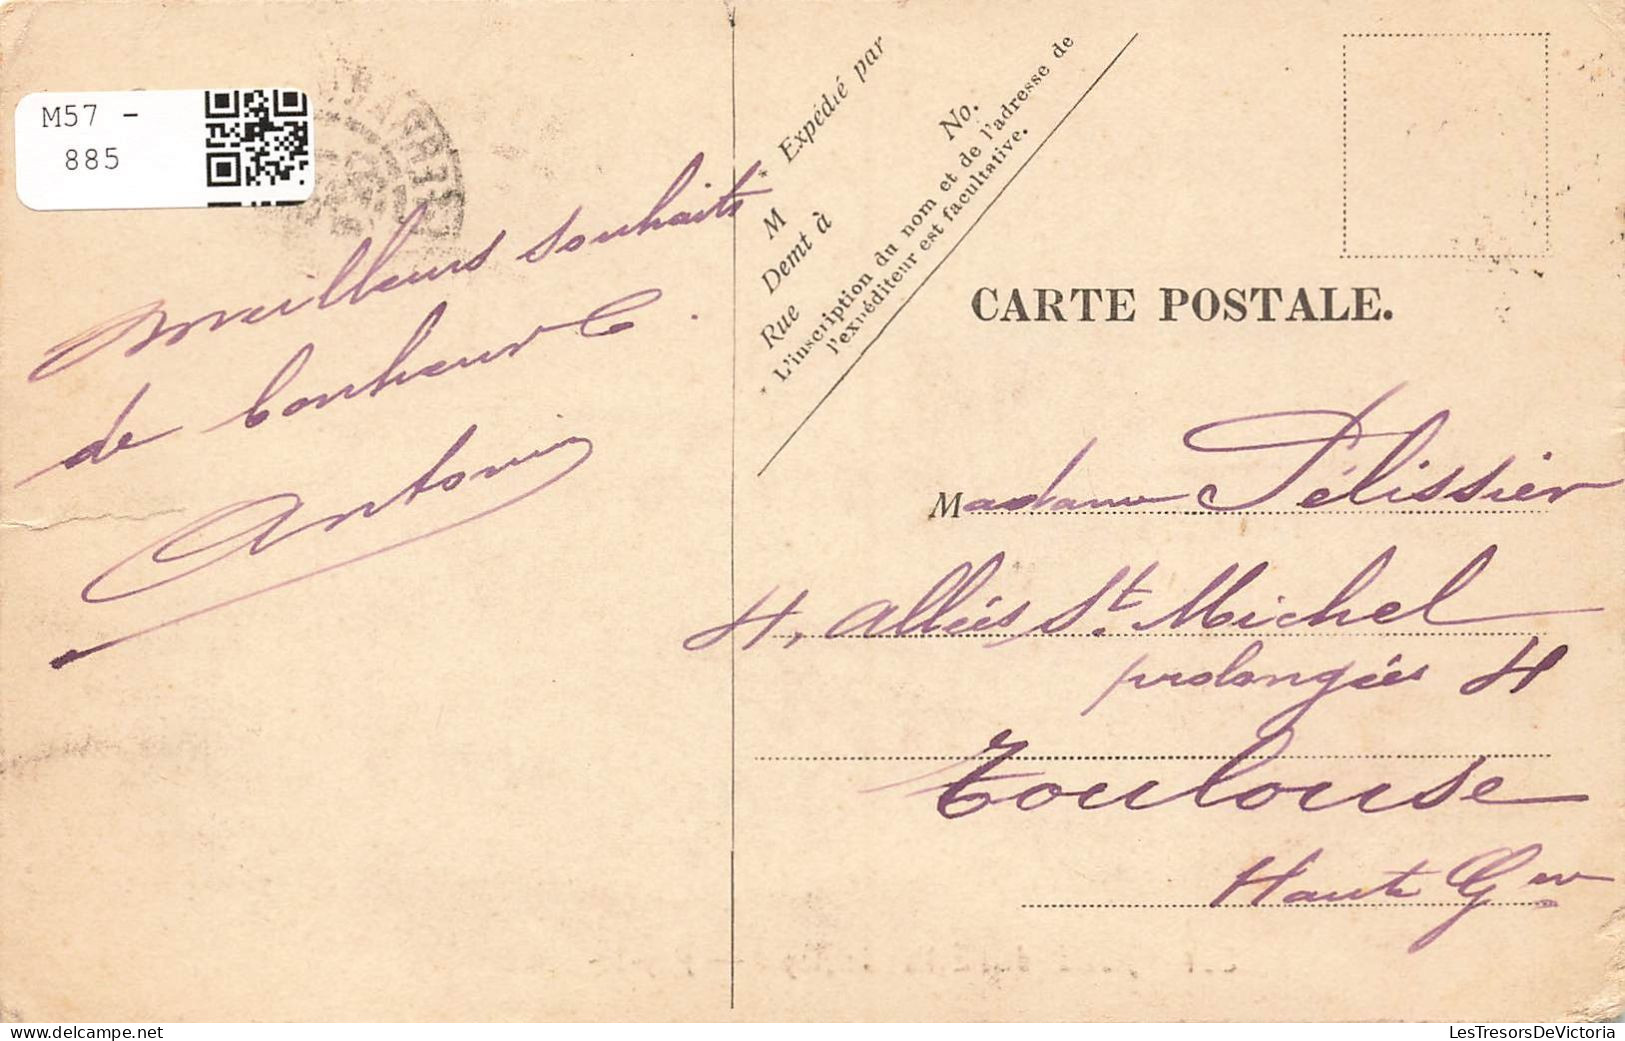 M57 -
885
Meilleurs souhaits
de bonheur
Antonin
* Expédié par
M No.
Demt à
Rue
* L'inscription du nom et de l'adresse de
l'expéditeur est facultative.
CARTE POSTALE.
Madame Pélissier
4, allées St. Michel
prolongées 4
Toulouse
Haute Gne
LesTresorsDeVictoria